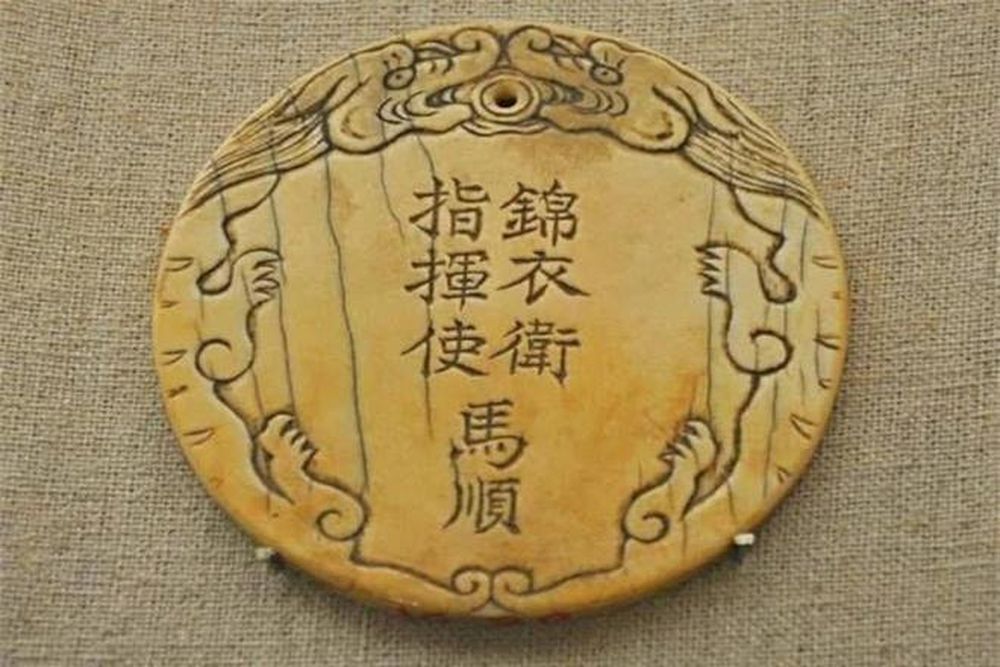 錦衣衛
指揮使
馬順